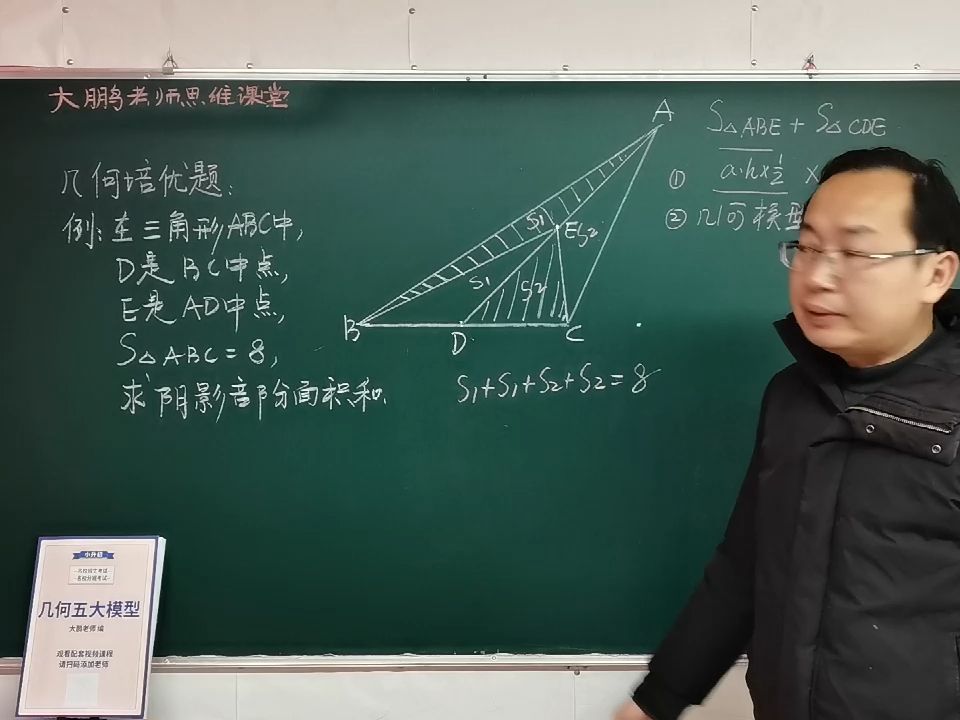 大鹏老师思维课堂
几何培优题:
例:在三角形ABC中,
D是BC中点,
E是AD中点,
S△ABC=8,
求阴影部分面积和.
A
S1
E
S2
S1
S2
B
D
C
S1+S1+S2+S2=8
S△ABE+S△CDE
① a·h×1/2 ×
②几何模型
小升初
几何五大模型
大鹏老师 编
观看配套视频课程
请扫码添加老师